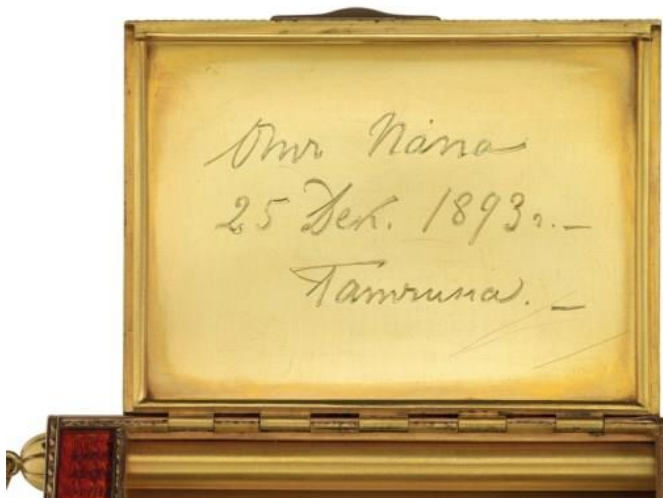 Отъ Папа
25 Дек. 1893 г. –
Гатчина. –